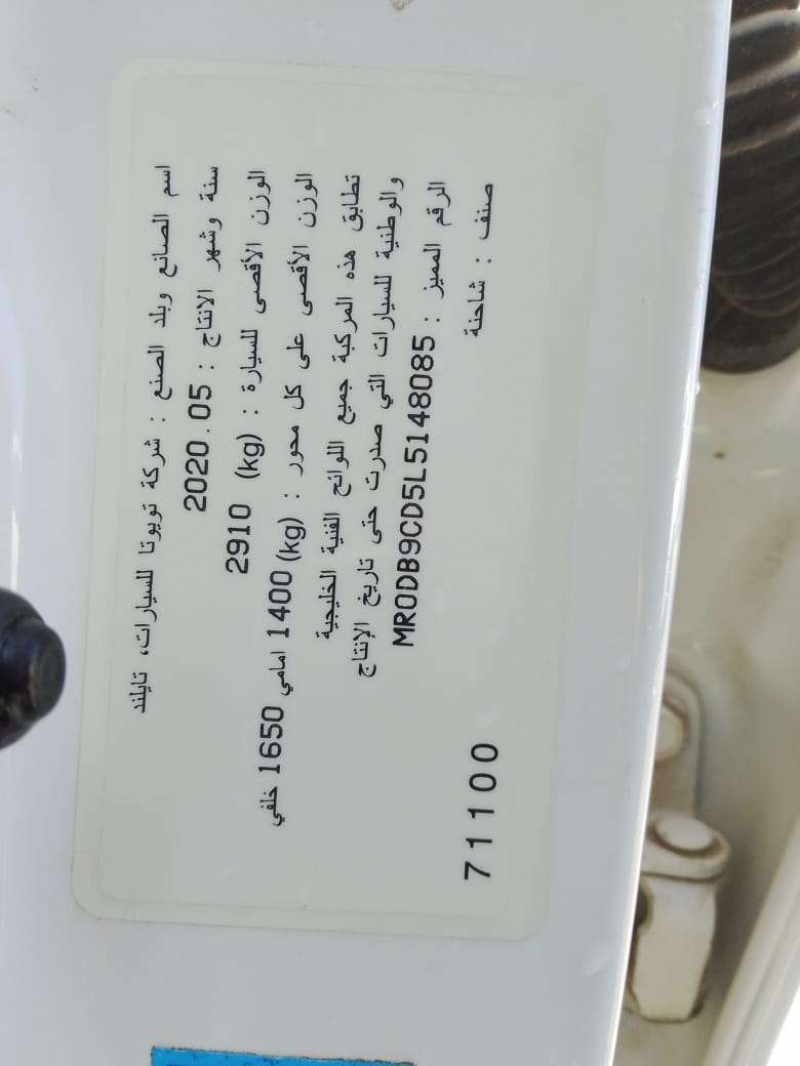 اسم الصانع وبلد الصنع : شركة تويوتا للسيارات، تايلند
سنة وشهر الانتاج : 2020.05
الوزن الأقصى للسيارة : (kg) 2910
الوزن الأقصى على كل محور : (kg) 1400 امامي 1650 خلفي
تطابق هذه المركبة جميع اللوائح الفنية الخليجية
والوطنية للسيارات التي صدرت حتى تاريخ الإنتاج
الرقم المميز : MR0DB9CD5L5148085
صنف : شاحنة
71100